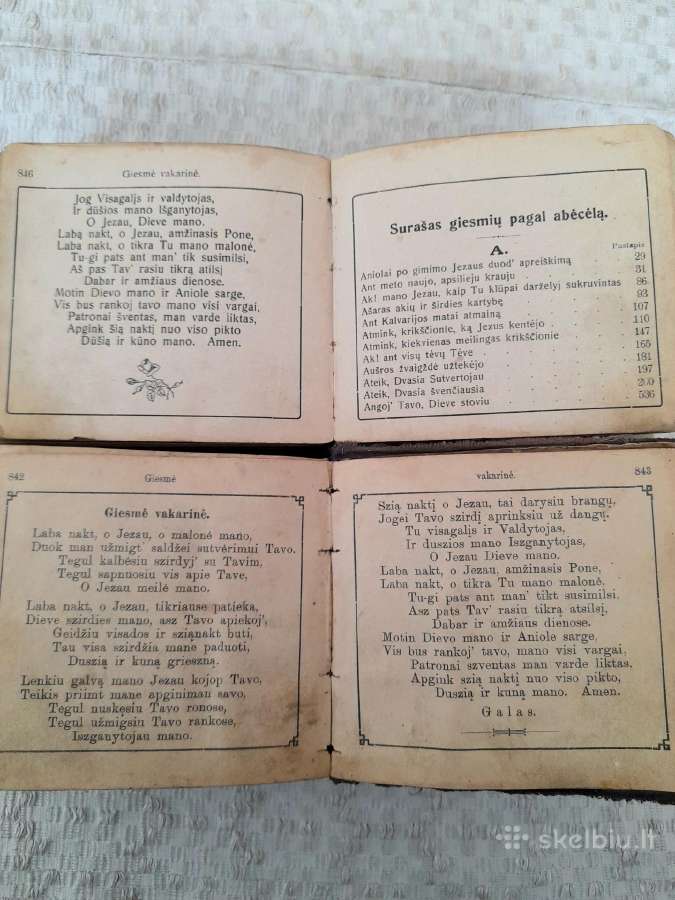 846 Giesmė vakarinė.
Jog Visagaljs ir valdytojas,
Ir dūšios mano Išganytojas,
O Jezau, Dieve mano.
Labą nakt, o Jezau, amžinasis Pone,
Laba nakt, o tikra Tu mano malonė,
Tu-gi pats ant man' tik susimilsi,
Aš pas Tav' rasiu tikrą atilsį
Dabar ir amžiaus dienose.
Motin Dievo mano ir Aniole sarge,
Vis bus rankoj tavo mano visi vargai,
Patronai šventas, man varde liktas,
Apgink šią naktį nuo viso pikto
Dūšią ir kūno mano. Amen.
Surašas giesmių pagal abėcėlą.
A.
Puslapis
Aniolai po gimimo Jezaus duod' apreiškimą 29
Ant meto naujo, apsilieju krauju 31
Ak! mano Jezau, kaip Tu klūpai darželyj sukruvintas 86
Ašaras akių ir širdies kartybę 93
Ant Kalvarijos matai atmainą 107
Atmink, krikščionie, ką Jezus kentėjo 110
Atmink, kiekvienas meilingas krikščionie 147
Ak! ant visų tėvų Tėve 165
Aušros žvaigždė užtekėjo 181
Ateik, Dvasia Sutvertojau 197
Ateik, Dvasia švenčiausia 200
Angoj' Tavo, Dieve stoviu 536
842 Giesmė
Giesmė vakarinė.
Laba nakt, o Jezau, o malonė mano,
Duok man užmigt saldžei sutvėrimui Tavo.
Tegul kalbėsiu szirdyj' su Tavim,
Tegul sapnuosiu vis apie Tave,
O Jezau meilė mano.
Laba nakt, o Jezau, tikriause patieka,
Dieve szirdies mano, asz Tavo apiekoj',
Geidžiu visados ir szianakt buti,
Tau visa szirdžia mane paduoti,
Duszią ir kuną grieszną.
Lenkiu galvą mano Jezau kojop Tavo,
Teikis priimt mane apginiman savo,
Tegul nuskęsiu Tavo ronose,
Tegul užmigsiu Tavo rankose,
Iszganytojau mano.
vakarinė. 843
Szią naktį o Jezau, tai darysiu brangų,
Jogei Tavo szirdį aprinksiu už dangų.
Tu visagalis ir Valdytojas,
Ir duszios mano Iszganytojas,
O Jezau Dieve mano.
Laba nakt, o Jezau, amžinasis Pone,
Laba nakt, o tikra Tu mano malonė.
Tu-gi pats ant man' tikt susimilsi.
Asz pats Tav' rasiu tikrą atsilsį.
Dabar ir amžiaus dienose.
Motin Dievo mano ir Aniole sarge,
Vis bus rankoj' tavo, mano visi vargai,
Patronai szventas man varde liktas,
Apgink szią naktį nuo viso pikto,
Duszią ir kuną mano. Amen.
Galas.
skelbiu.lt